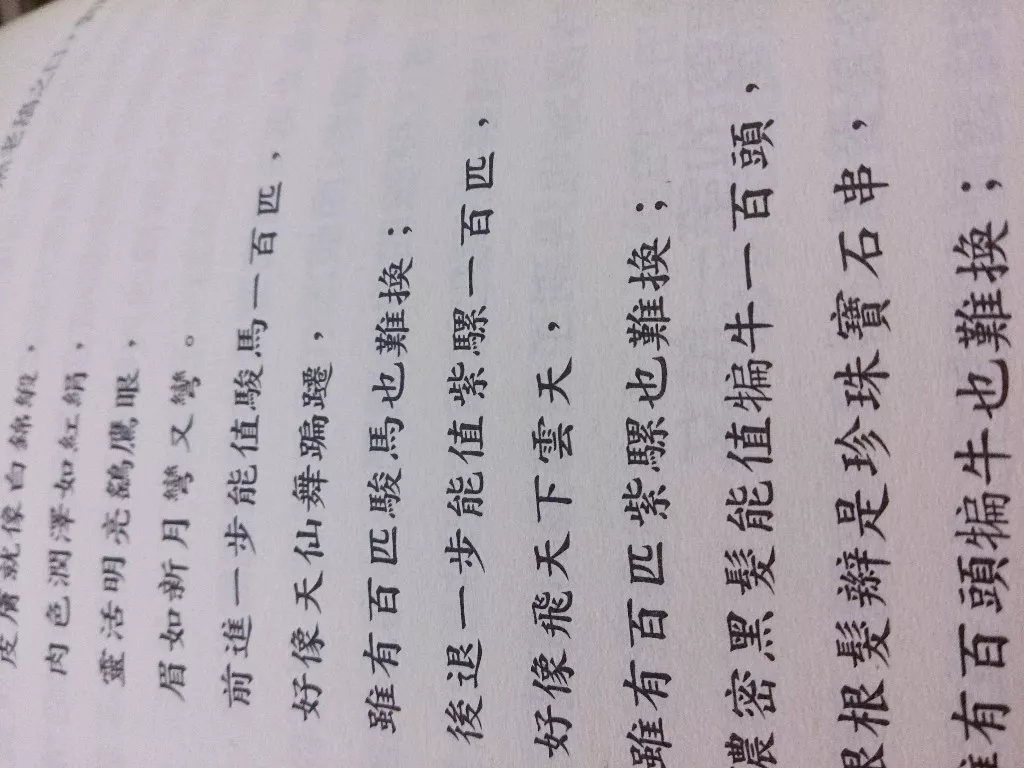 皮膚就像白錦緞，
肉色潤澤如紅絹，
靈活明亮鷂鷹眼，
眉如新月彎又彎。
前進一步能值駿馬一百匹，
好像天仙舞蹁躚，
雖有百匹駿馬也難換；
後退一步能值紫騾一百匹，
好像飛天下雲天，
雖有百匹紫騾也難換；
濃密黑髮能值犏牛一百頭，
根根髮辮是珍珠寶石串，
雖有百頭犏牛也難換；